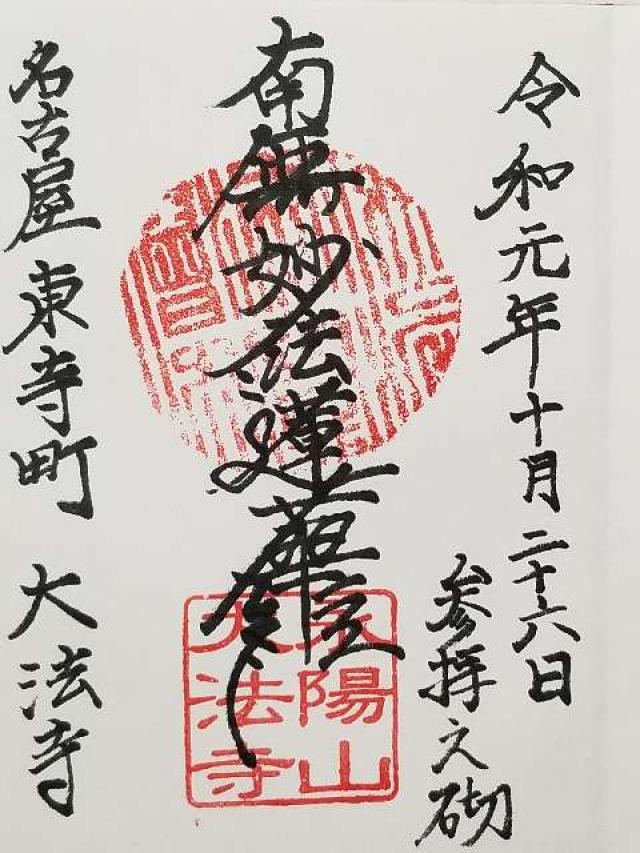 令和元年十月二十六日
参拝之砌
南無妙法蓮華経
名古屋東寺町 大法寺
陽山
大法寺